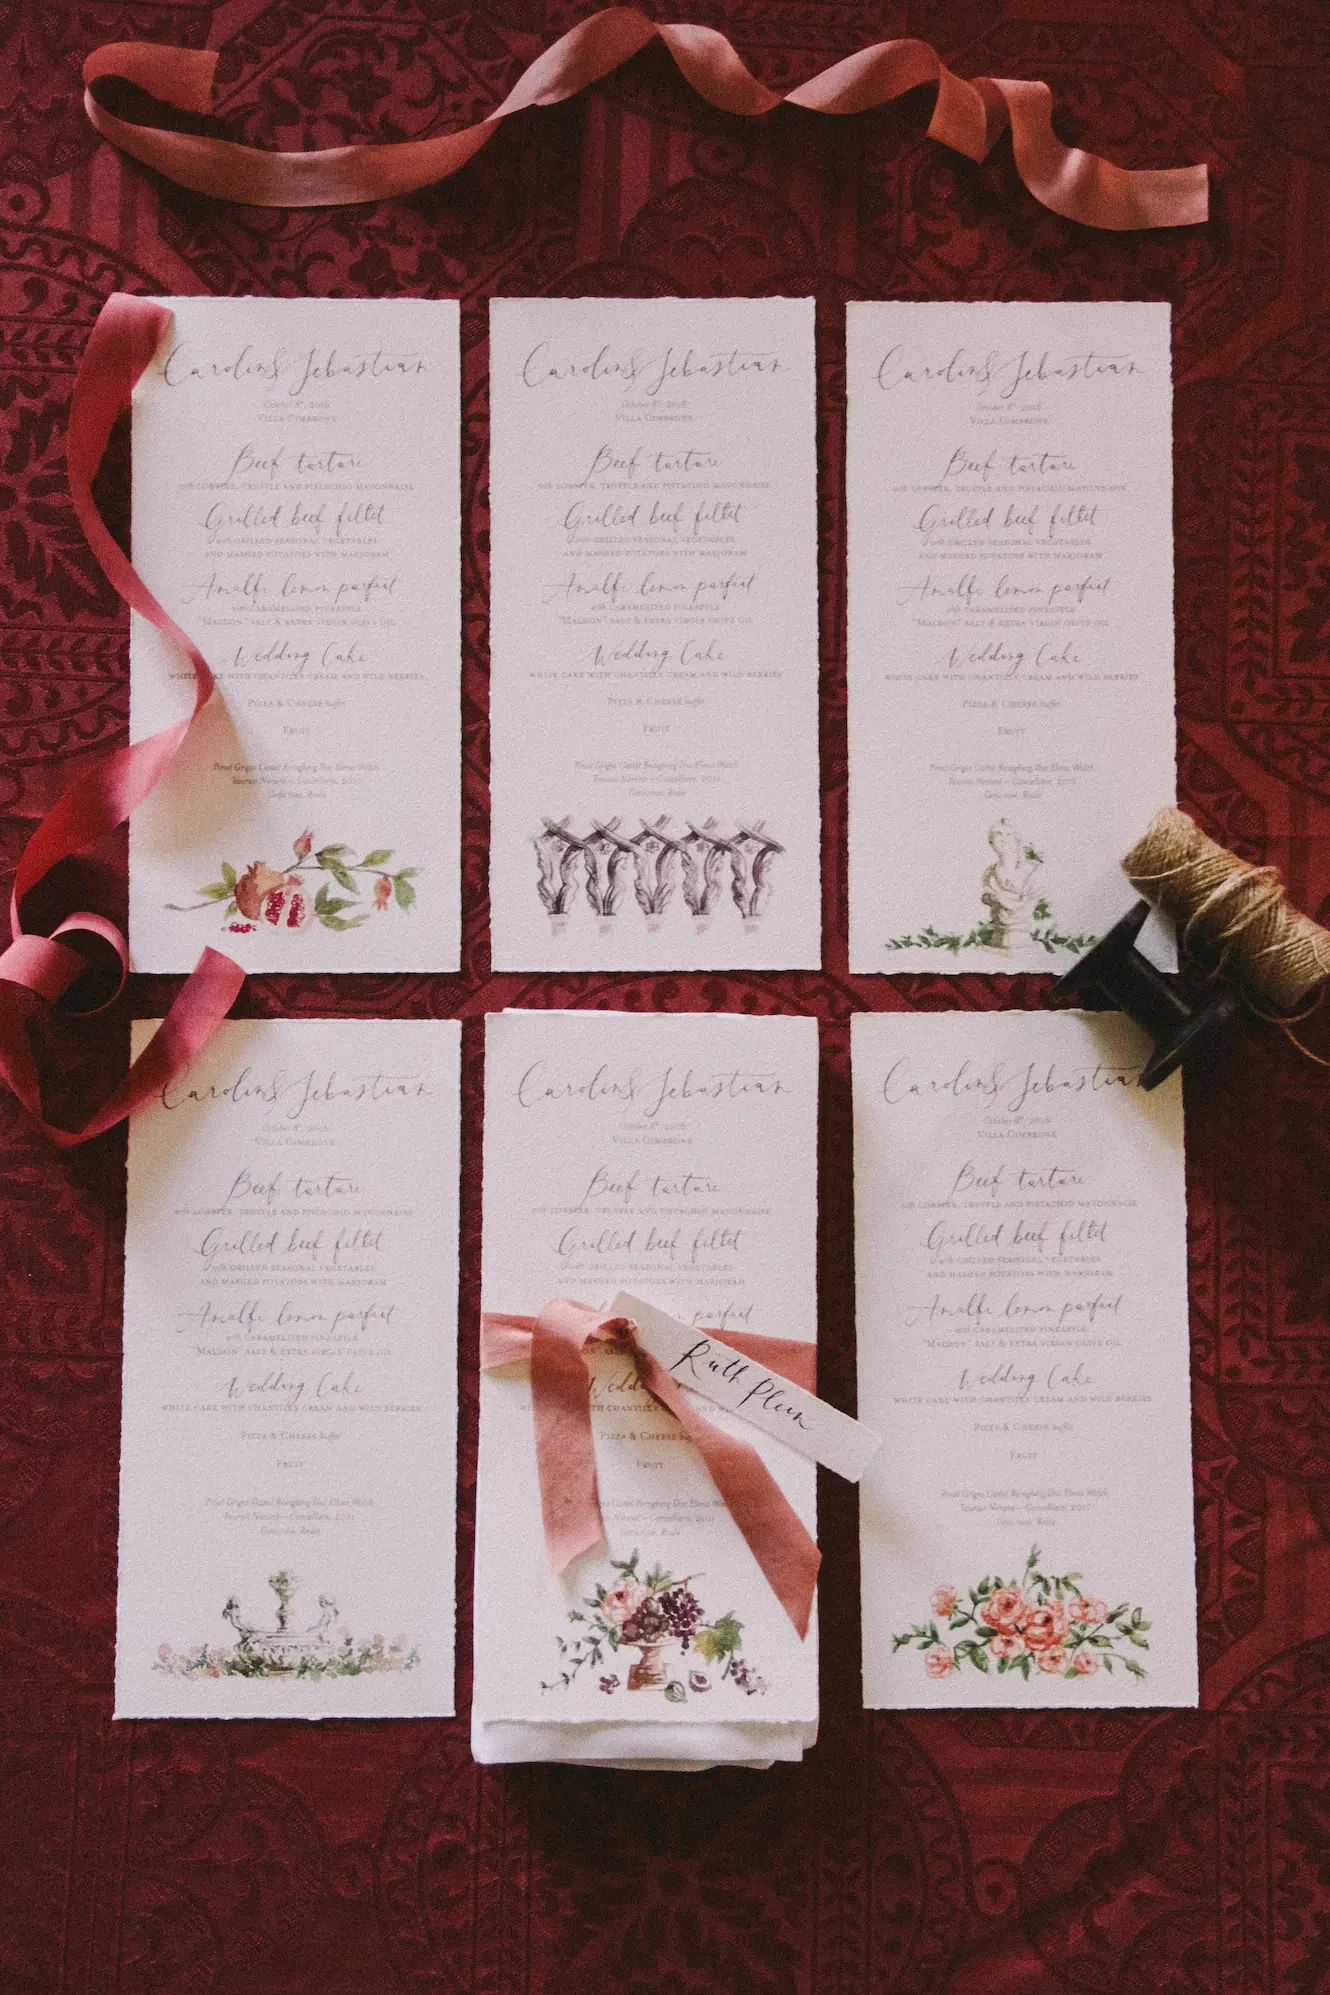 Carolin & Sebastian
October 8th, 2016
VILLA CIMBRONE
Beef tartare
with LOBSTER, TRUFFLE AND PISTACHIO MAYONNAISE
Grilled beef fillet
with GRILLED SEASONAL VEGETABLES
AND MASHED POTATOES WITH MARJORAM
Amalfi lemon parfait
with CARAMELIZED PINEAPPLE
"MALDON" SALT & EXTRA VIRGIN OLIVE OIL
Wedding Cake
WHITE CAKE WITH CHANTILLY CREAM AND WILD BERRIES
PIZZA & CHEESE buffet
FRUIT
Pinot Grigio Castel Ringberg Doc Elena Walch
Taurasi Nero – Cancelliera, 2011
rosé,
Carolin & Sebastian
October 8th, 2016
VILLA CIMBRONE
Beef tartare
with LOBSTER, TRUFFLE AND PISTACHIO MAYONNAISE
Grilled beef fillet
with GRILLED SEASONAL VEGETABLES
AND MASHED POTATOES WITH MARJORAM
Amalfi lemon parfait
with CARAMELIZED PINEAPPLE
"MALDON" SALT & EXTRA VIRGIN OLIVE OIL
Wedding Cake
WHITE CAKE WITH CHANTILLY CREAM AND WILD BERRIES
PIZZA & CHEESE buffet
FRUIT
Pinot Grigio Castel Ringberg Doc Elena Walch
Taurasi 2011
rosé,
Carolin & Sebastian
October 8th, 2016
VILLA CIMBRONE
Beef tartare
with LOBSTER, TRUFFLE AND PISTACHIO MAYONNAISE
Grilled beef fillet
with GRILLED SEASONAL VEGETABLES
AND MASHED POTATOES WITH MARJORAM
Amalfi lemon parfait
with CARAMELIZED PINEAPPLE
"MALDON" SALT & EXTRA VIRGIN OLIVE OIL
Wedding Cake
WHITE CAKE WITH CHANTILLY CREAM AND WILD BERRIES
PIZZA & CHEESE buffet
FRUIT
Pinot Grigio Castel Ringberg Doc Elena Walch
Taurasi 2011
rosé,
Carolin & Sebastian
October 8th, 2016
VILLA CIMBRONE
Beef tartare
with LOBSTER, TRUFFLE AND PISTACHIO MAYONNAISE
Grilled beef fillet
with GRILLED SEASONAL VEGETABLES
AND MASHED POTATOES WITH MARJORAM
Amalfi lemon parfait
with CARAMELIZED PINEAPPLE
"MALDON" SALT & EXTRA VIRGIN OLIVE OIL
Wedding Cake
WHITE CAKE WITH CHANTILLY CREAM AND WILD BERRIES
PIZZA & CHEESE buffet
FRUIT
Pinot Grigio Castel Ringberg Doc Elena Walch
Taurasi 2011
rosé,
Carolin & Sebastian
October 8th, 2016
VILLA CIMBRONE
Beef tartare
with LOBSTER, TRUFFLE AND PISTACHIO MAYONNAISE
Grilled beef fillet
with GRILLED SEASONAL VEGETABLES
AND MASHED POTATOES WITH MARJORAM
parfait
Ruth Plein
Wedd
WHITE CAKE
PIZZA & CHEESE
FRUIT
Castel Ringberg Doc Elena
2011
Carolin & Sebastian
October 8th, 2016
VILLA CIMBRONE
Beef tartare
with LOBSTER, TRUFFLE AND PISTACHIO MAYONNAISE
Grilled beef fillet
with GRILLED SEASONAL VEGETABLES
AND MASHED POTATOES WITH MARJORAM
Amalfi lemon parfait
with CARAMELIZED PINEAPPLE
"MALDON" SALT & EXTRA VIRGIN OLIVE OIL
Wedding Cake
WHITE CAKE WITH CHANTILLY CREAM AND WILD BERRIES
PIZZA & CHEESE buffet
FRUIT
Pinot Grigio Castel Ringberg Doc Elena Walch
Taurasi 2011
rosé,